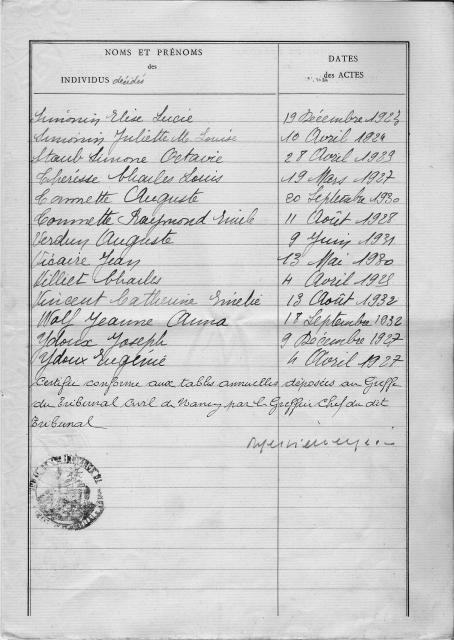 NOMS ET PRÉNOMS
des
INDIVIDUS décédés
DATES
des ACTES
Simonin Elise Lucie 19 Décembre 1923
Simonin Juliette M. Louise 10 Avril 1924
Staub Simone Octavie 28 Avril 1929
Thérésse Charles Louis 19 Mars 1927
Tonnette Auguste 20 Septembre 1930
Tonnette Raymond Emile 11 Août 1928
Verdun Auguste 9 Juin 1931
Vicaire Jean 13 Mai 1930
Villiet Charles 4 Avril 1925
Vincent Catherine Emélie 13 Août 1932
Wolf Jeanne Anna 18 Septembre 1932
Ydoux Joseph 9 Décembre 1927
Ydoux Eugénie 4 Avril 1927
Certifié conforme aux tables annuelles déposées au Greffe
du Tribunal Civil de Nancy par le Greffier Chef du dit
Tribunal